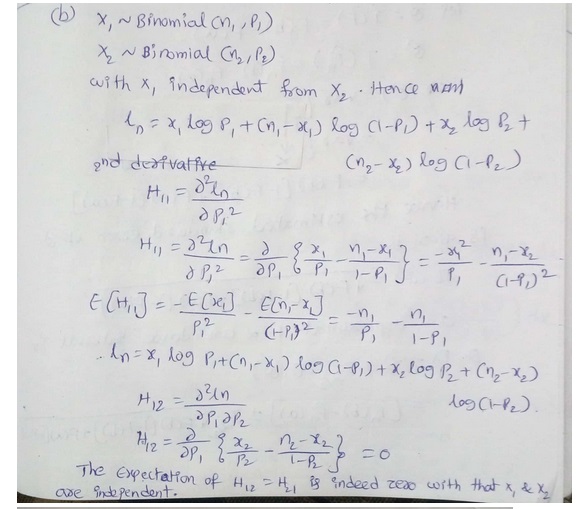 (b) X₁ ~ Binomial (n₁, P₁)
X₂ ~ Binomial (n₂, P₂)
with X₁ independent from X₂. Hence
lₙ = x₁ log P₁ + (n₁-x₁) log (1-P₁) + x₂ log P₂ +
(n₂-x₂) log (1-P₂)
2nd derivative
H₁₁ = ∂²lₙ / ∂P₁²
H₁₁ = ∂²lₙ / ∂P₁² = ∂/∂P₁ { x₁/P₁ - (n₁-x₁)/(1-P₁) } = -x₁²/P₁ - (n₁-x₂)/(1-P₁)²
E[H₁₁] = -E[x₁]/P₁² - E[n₁-x₁]/(1-P₁)² = -n₁/P₁ - n₁/(1-P₁)
. lₙ = x₁ log P₁ + (n₁-x₁) log (1-P₁) + x₂ log P₂ + (n₂-x₂)
log (1-P₂).
H₁₂ = ∂²lₙ / ∂P₁∂P₂
H₁₂ = ∂/∂P₁ { x₂/P₂ - (n₂-x₂)/(1-P₂) } = 0
The expectation of H₁₂ = H₂₁ is indeed zero with that X₁ & X₂
are independent.